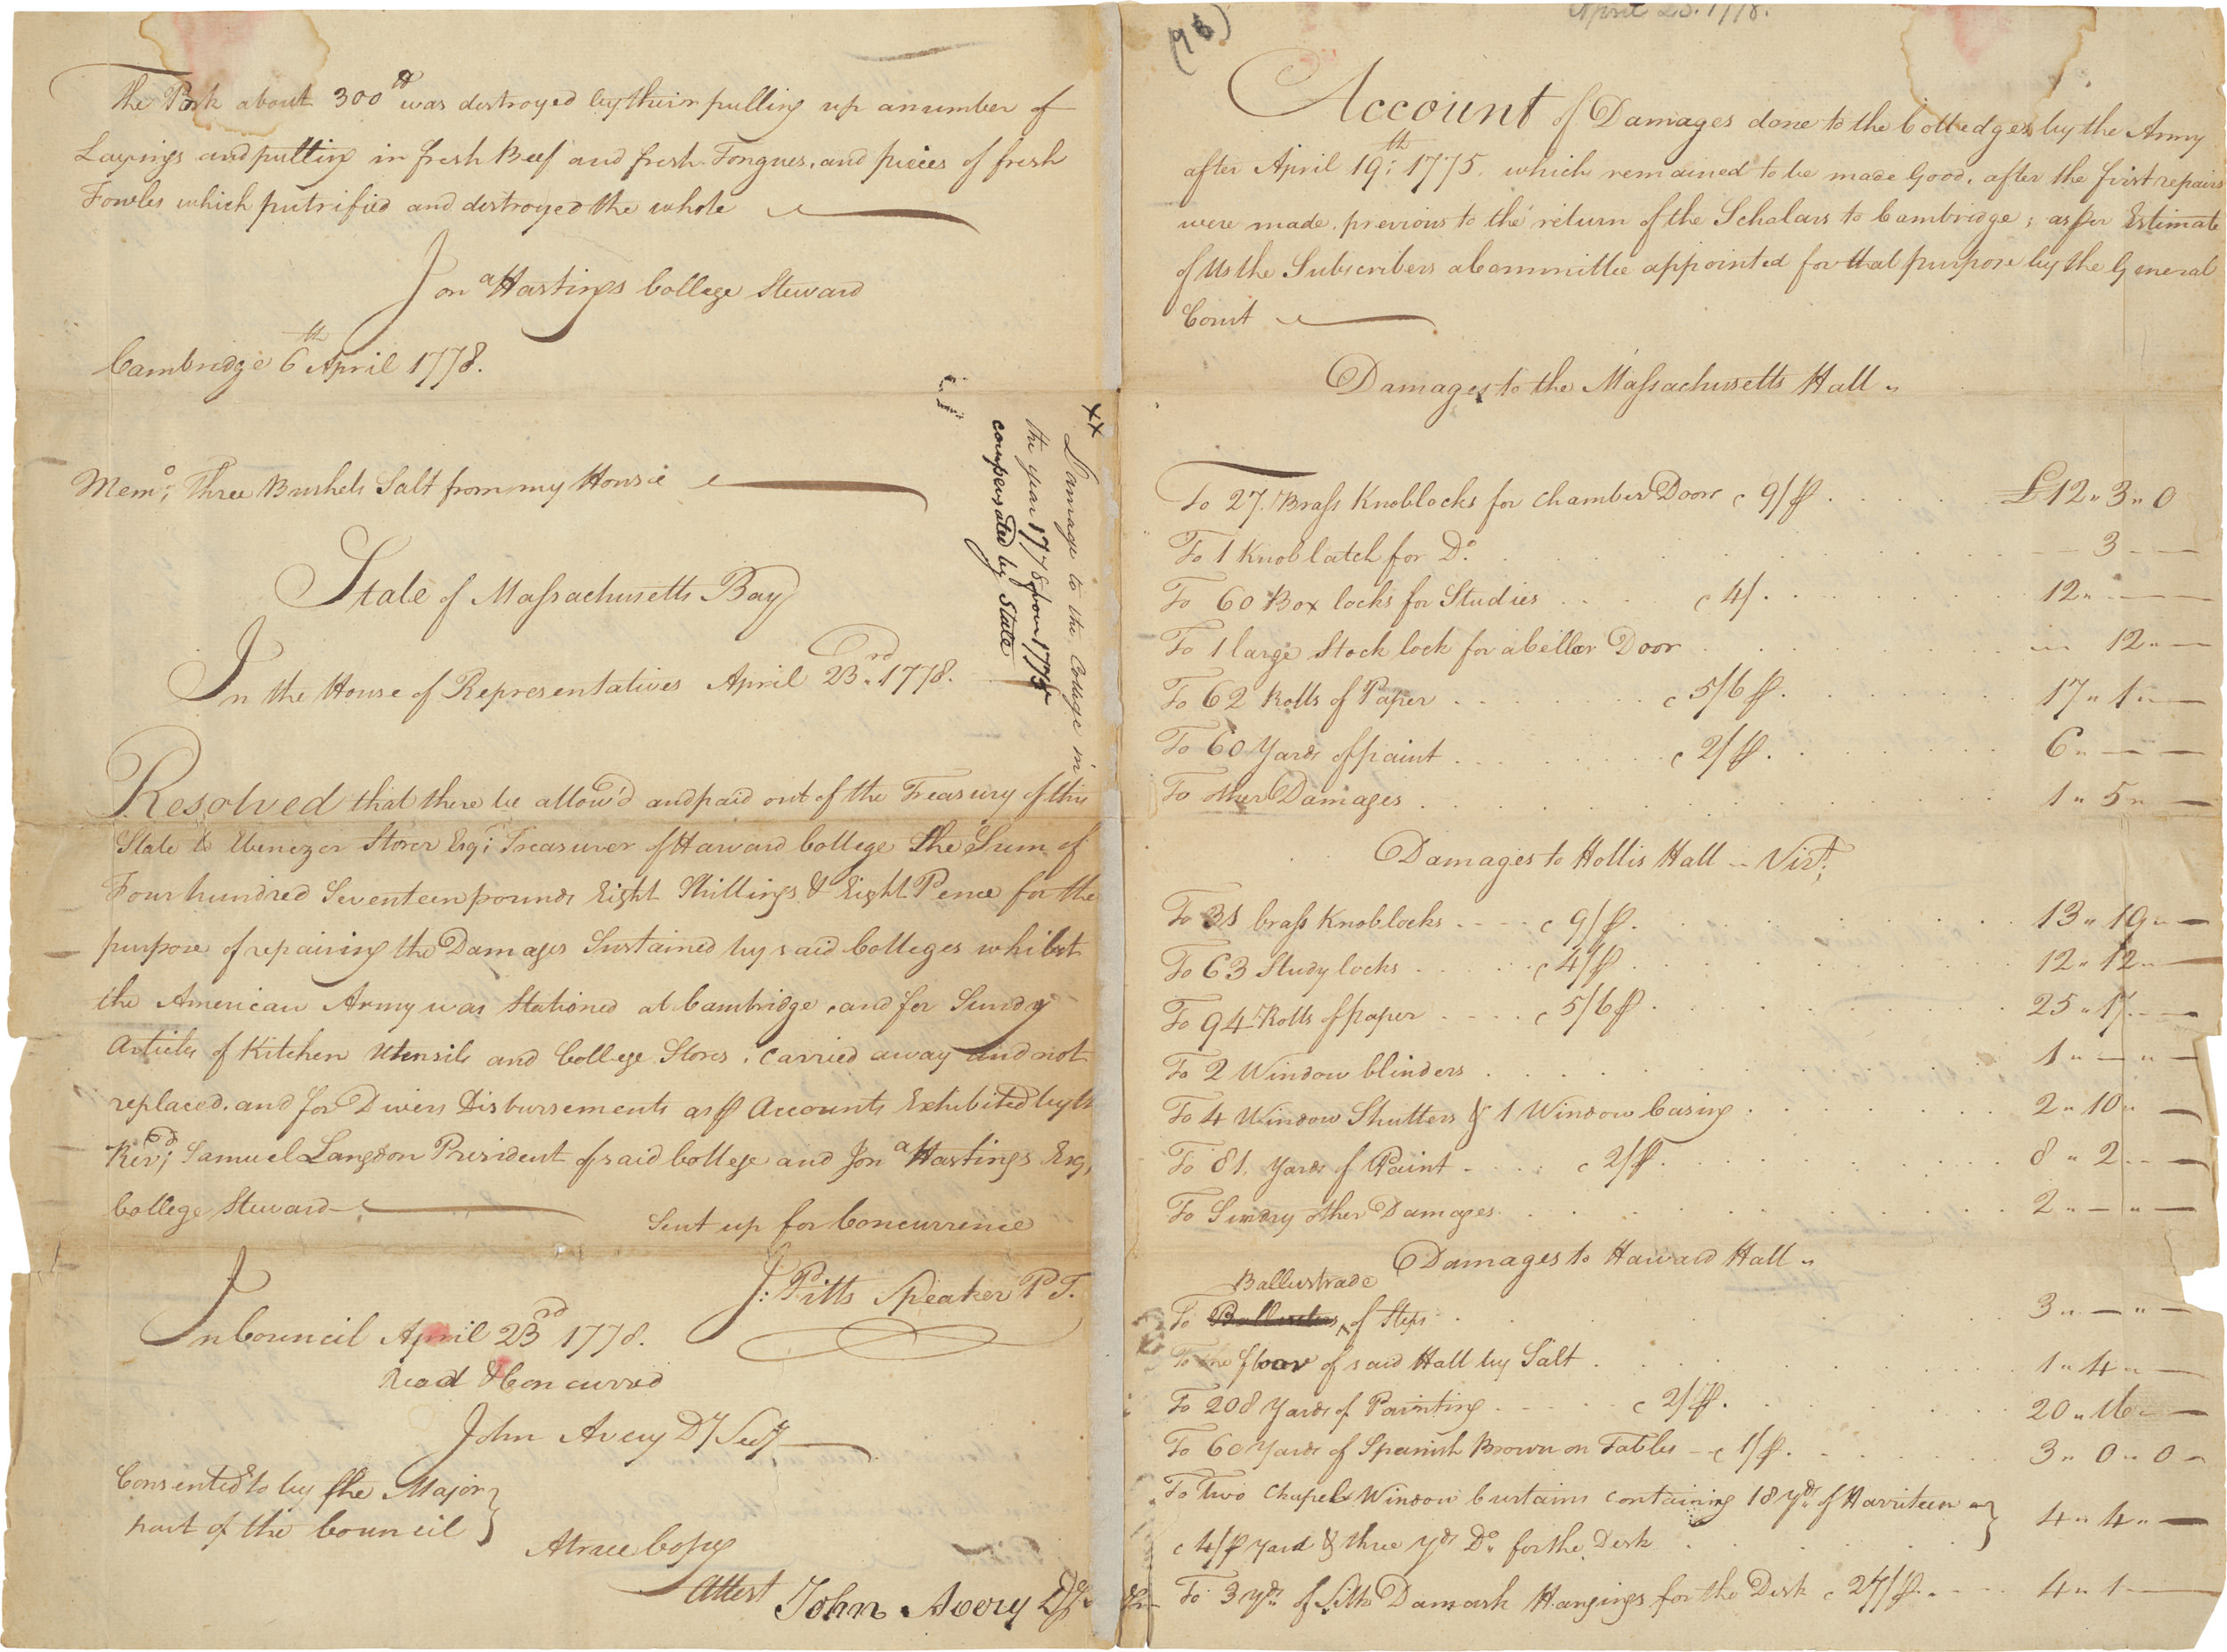 The Pork about 300 lb was destroyed by their pulling up a number of
Layings and putting in fresh Beef and fresh Tongues, and pieces of fresh
Fowles which putrified and destroyed the whole
Jona Hastings College Steward
Cambridge 6th April 1778.
Memo; Three Bushels Salt from my House
State of Massachusetts Bay
In the House of Representatives April 23rd 1778.
Resolved that there be allow'd and paid out of the Treasury of this
State to Ebenezer Storer Esq; Treasurer of Harvard College The Sum of
Four hundred Seventeen pounds Eight Shillings & Eight Pence for the
purpose of repairing the Damages Sustained by said Colleges whilst
the American Army was Stationed at Cambridge, and for Sundry
Articles of Kitchen Utensils and College Stores, carried away and not
replaced, and for Divers Disbursements as ⅌ Accounts Exhibited by
Revd; Samuel Langdon President of said College and Jona Hastings Esq;
College Steward
Sent up for Concurrence
J: Pitts Speaker P T.
In Council April 23rd 1778.
Read & Concurred
John Avery Dy Secy
Consented to by the Major
part of the Council
A true Copy
Attest John Avery Dy
xx
Damage to the College in
the year 1778 from 1775
compensated by State
(98)
April 23. 1778.
Account of Damages done to the Colledges by the Army
after April 19th; 1775. which remained to be made Good, after the first repairs
were made, previous to the return of the Scholars to Cambridge; as per Estimate
of Us the Subscribers a Committee appointed for that purpose by the General
Court
Damages to the Massachusetts Hall
To 27 Brass Knoblocks for Chamber Doors @ 9/⅌ £12 " 3 " 0
To 1 Knob latch for Do. 3
To 60 Box locks for Studies @ 4/. 12 "
To 1 large Stock lock for a Cellar Door 12 "
To 62 Rolls of Paper @ 5/6 ⅌ 17 " 1 "
To 60 Yards of paint @ 2/⅌ 6 "
To other Damages 1 " 5 "
Damages to Hollis Hall Vizt;
To 31 brass Knoblocks @ 9/⅌ 13 " 19 "
To 63 Study locks @ 4/⅌ 12 " 12 "
To 94 Rolls of paper @ 5/6 ⅌ 25 " 17
To 2 Window blinders 1 "
To 4 Window Shutters & 1 Window Casing 2 " 10 "
To 81 Yards of Paint @ 2/⅌ 8 " 2
To Sundry other Damages 2 "
Damages to Harvard Hall "
Ballustrade
To of Steps 3 "
To the floor of said Hall by Salt 1 " 4 "
To 208 Yards of Painting @ 2/⅌ 20 " 16
To 60 Yards of Spanish Brown on Tables @ 1/⅌ 3 " 0 " 0
To Two Chapel Window Curtains containing 18 yds of Harriteen
@ 4/⅌ yard & three yds Do. for the Desk 4 " 4 "
To 3 yds of Silk Damask Hangings for the Desk @ 27/⅌ 4 " 1